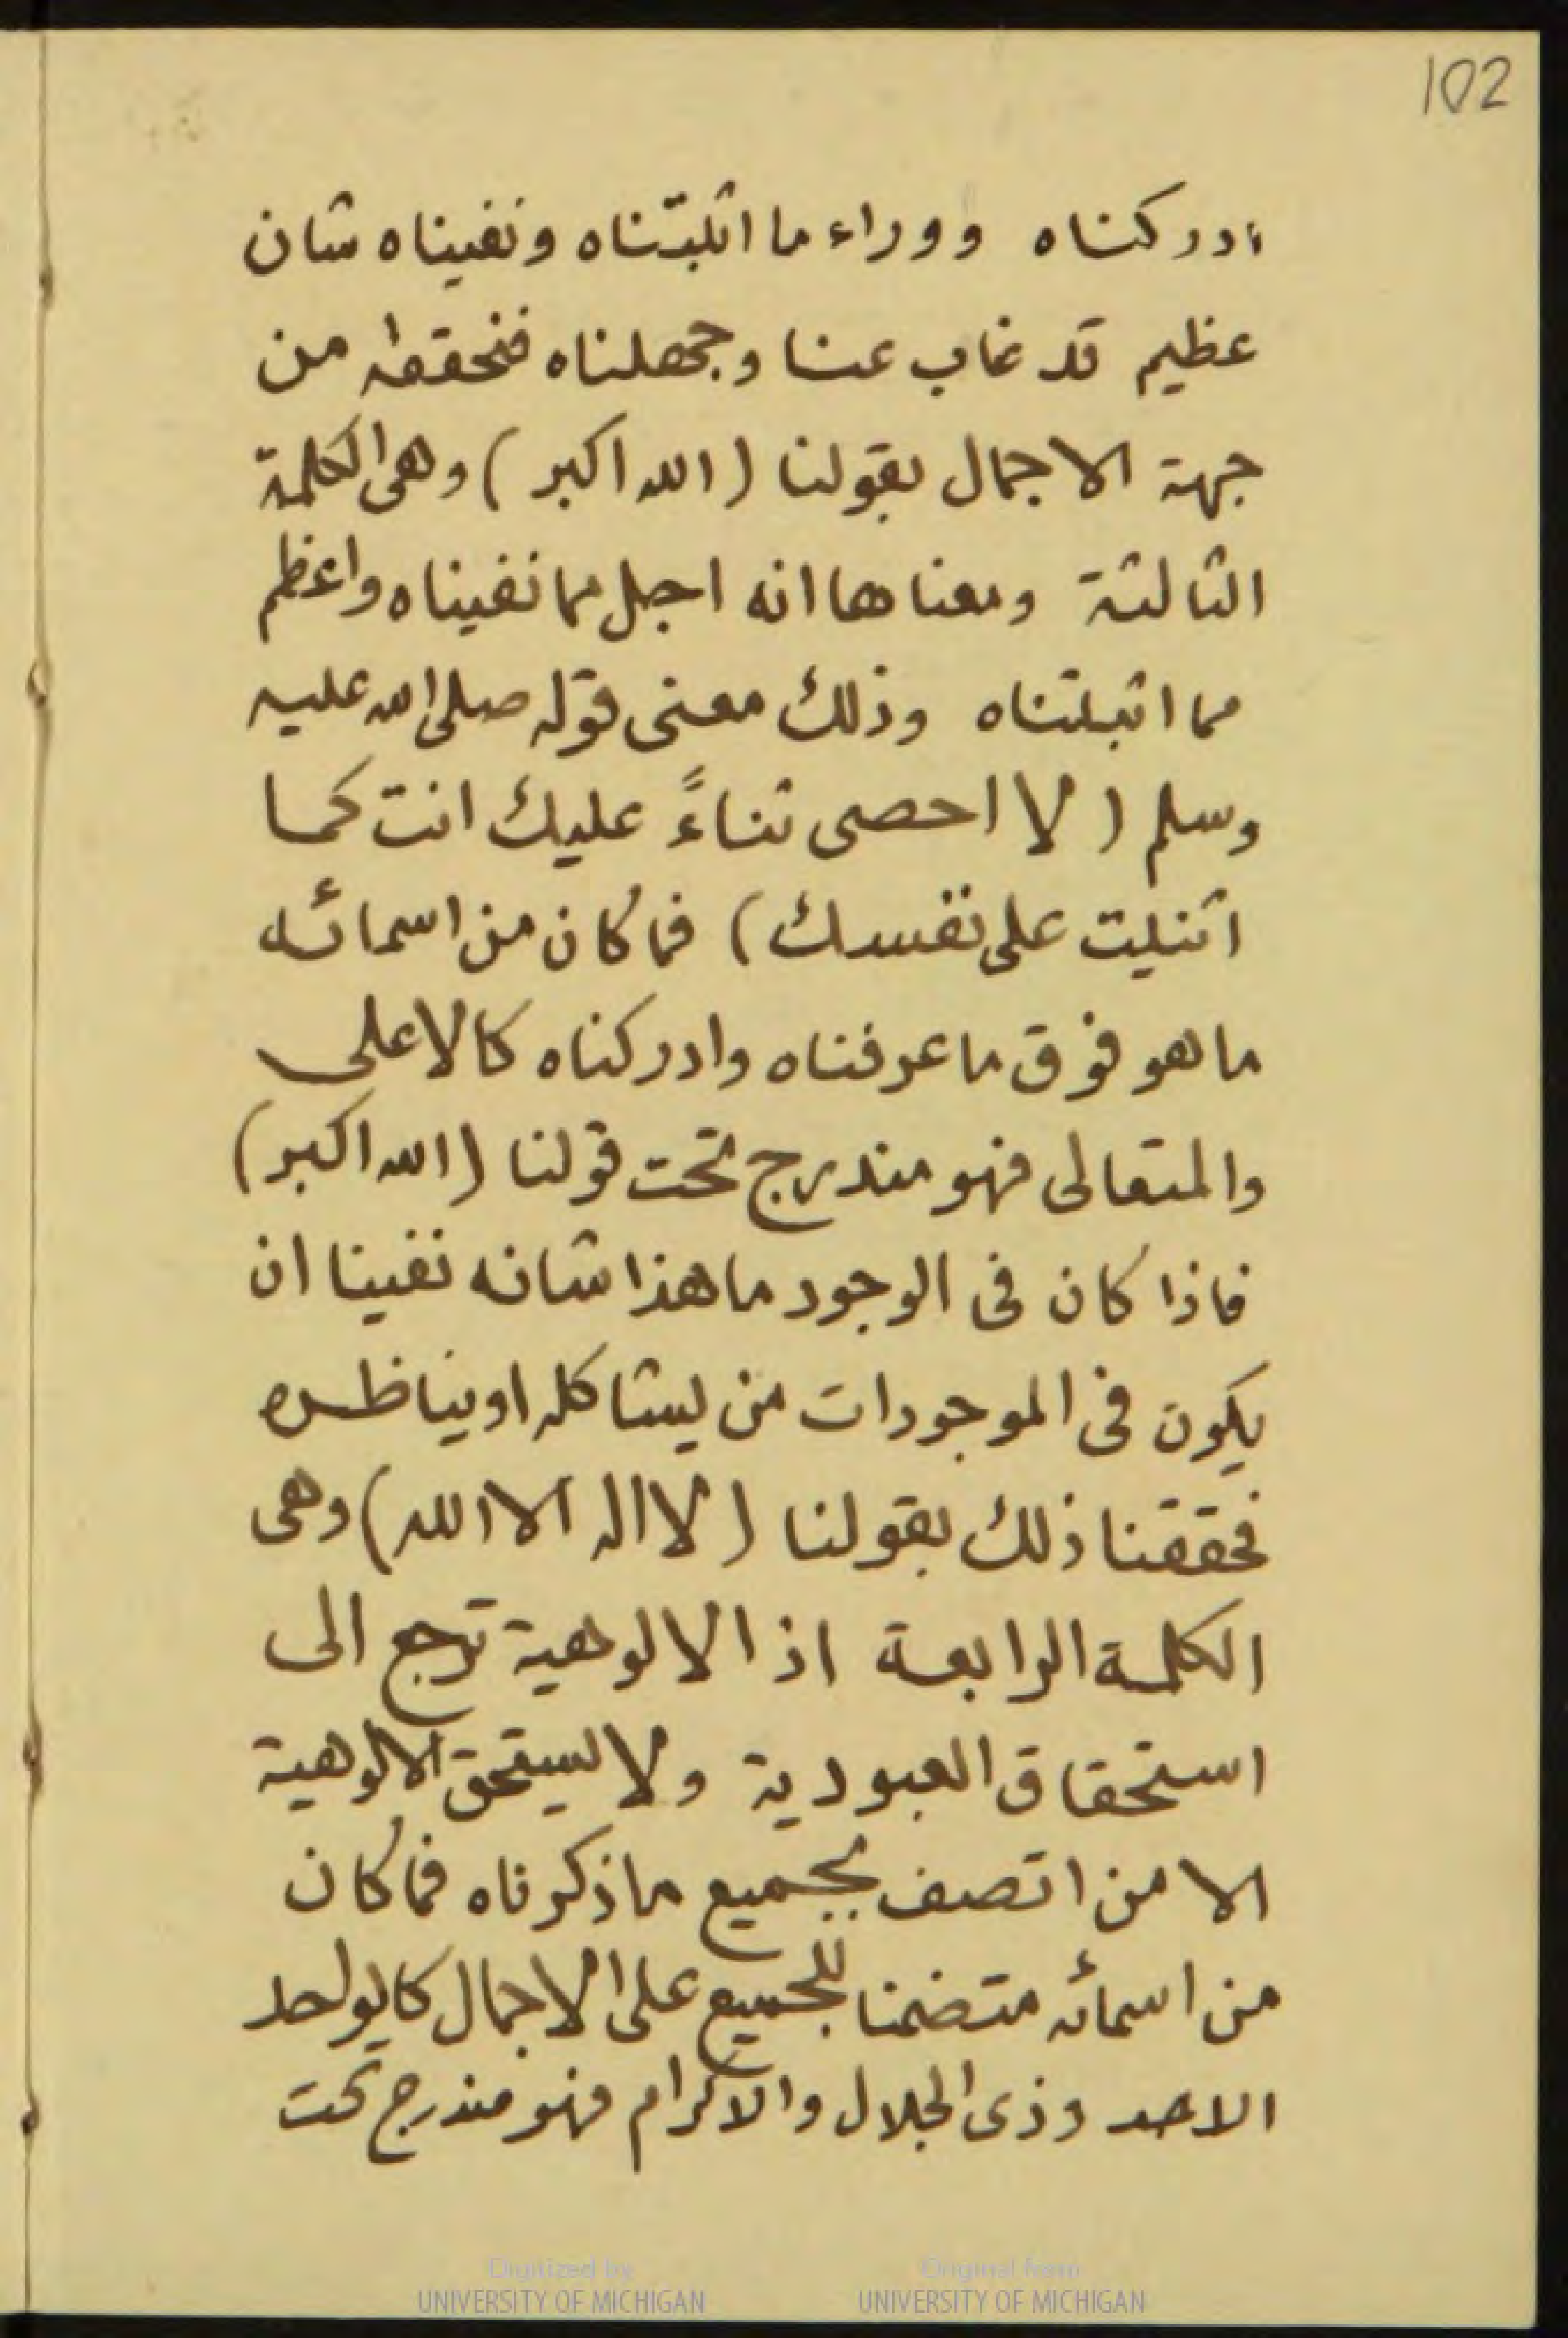 102
ادركناه ووراء ما اثبتناه ونفيناه شان
عظيم قد غاب عنا وجهلناه فنحققه من
جهة الاجمال بقولنا (الله اكبر) وهى الكلمة
الثالثة ومعناها انه اجل مما نفيناه واعظم
مما اثبتناه وذلك معنى قوله صلى الله عليه
وسلم (لا احصى ثناءً عليك انت كما
اثنيت على نفسك) فما كان من اسمائه
ما هو فوق ما عرفناه وادركناه كالاعلى
والمتعالى فهو مندرج تحت قولنا (الله اكبر)
فاذا كان فى الوجود ما هذا شانه نفينا ان
يكون فى الموجودات من يشاكله او يناظره
فحققنا ذلك بقولنا (لا اله الا الله) وهى
الكلمة الرابعة اذ الالوهية ترجع الى
استحقاق العبودية ولا يستحق الالوهية
الا من اتصف بجميع ما ذكرناه فما كان
من اسمائه متضمنا للجميع على الاجمال كالواحد
الاحد وذى الجلال والاكرام فهو مندرج تحت
Digitized by UNIVERSITY OF MICHIGAN
Original from UNIVERSITY OF MICHIGAN